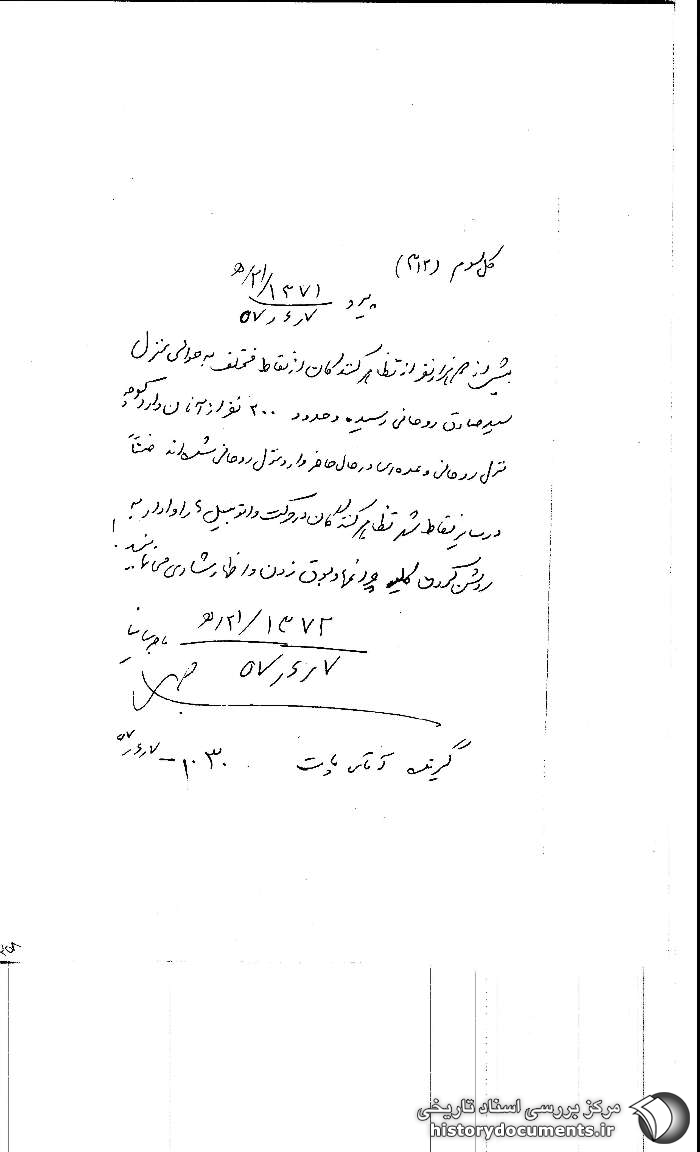 کل سوم (۳۱۲)
پیرو ۲۱/۱۳۷۱/ه
۵۷٫۶٫۷
بیش از هزار نفر از تظاهر کنندگان از نقاط مختلف به حوالی منزل
سید صادق روحانی رسیده و حدود ۲۰۰ نفر از آنان وارد کوچه
منزل روحانی و عده‌ای در حال حاضر وارد منزل روحانی شده‌اند ضمناً
در سایر نقاط شهر تظاهر کنندگان در حرکت و اتومبیل‌ها را وادار به
روشن کردن کلیه چراغها و بوق زدن و اظهار شادی می‌نمایند.
۲۱/۱۳۷۲/ه
۵۷٫۶٫۷
گیرنده آقای
۱۰۳۰ – ۵۷٫۶٫۷
مرکز بررسی اسناد تاریخی
historydocuments.ir